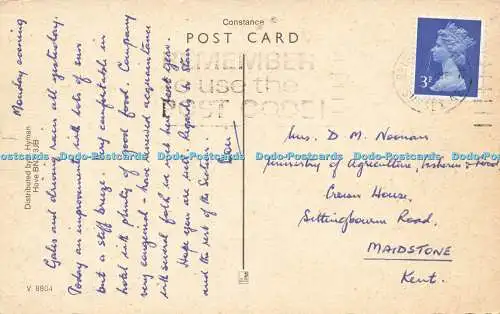 Constance
POST CARD
REMEMBER
to use the
POST CODE!
3P
Monday evening
Gales and driving rain all yesterday.
Today an improvement with lots of sun
but a stiff breeze. Very comfortable in
hotel with plenty of good food. Company
very congenial - have renewed acquaintance
with several folk we met here last year.
Hope you are well. Regards to Stan
and the rest of the Section.
Mrs. D. M. Noonan
Ministry of Agriculture, Fisheries & Food
Crown House,
Sittingbourne Road,
MAIDSTONE
Kent.
Distributed by Hyman
Hove BN 3JB
V 8804
Postcards-Online Dodo-Postcards Postcards-Online Dodo-Postcards Postcards-Online